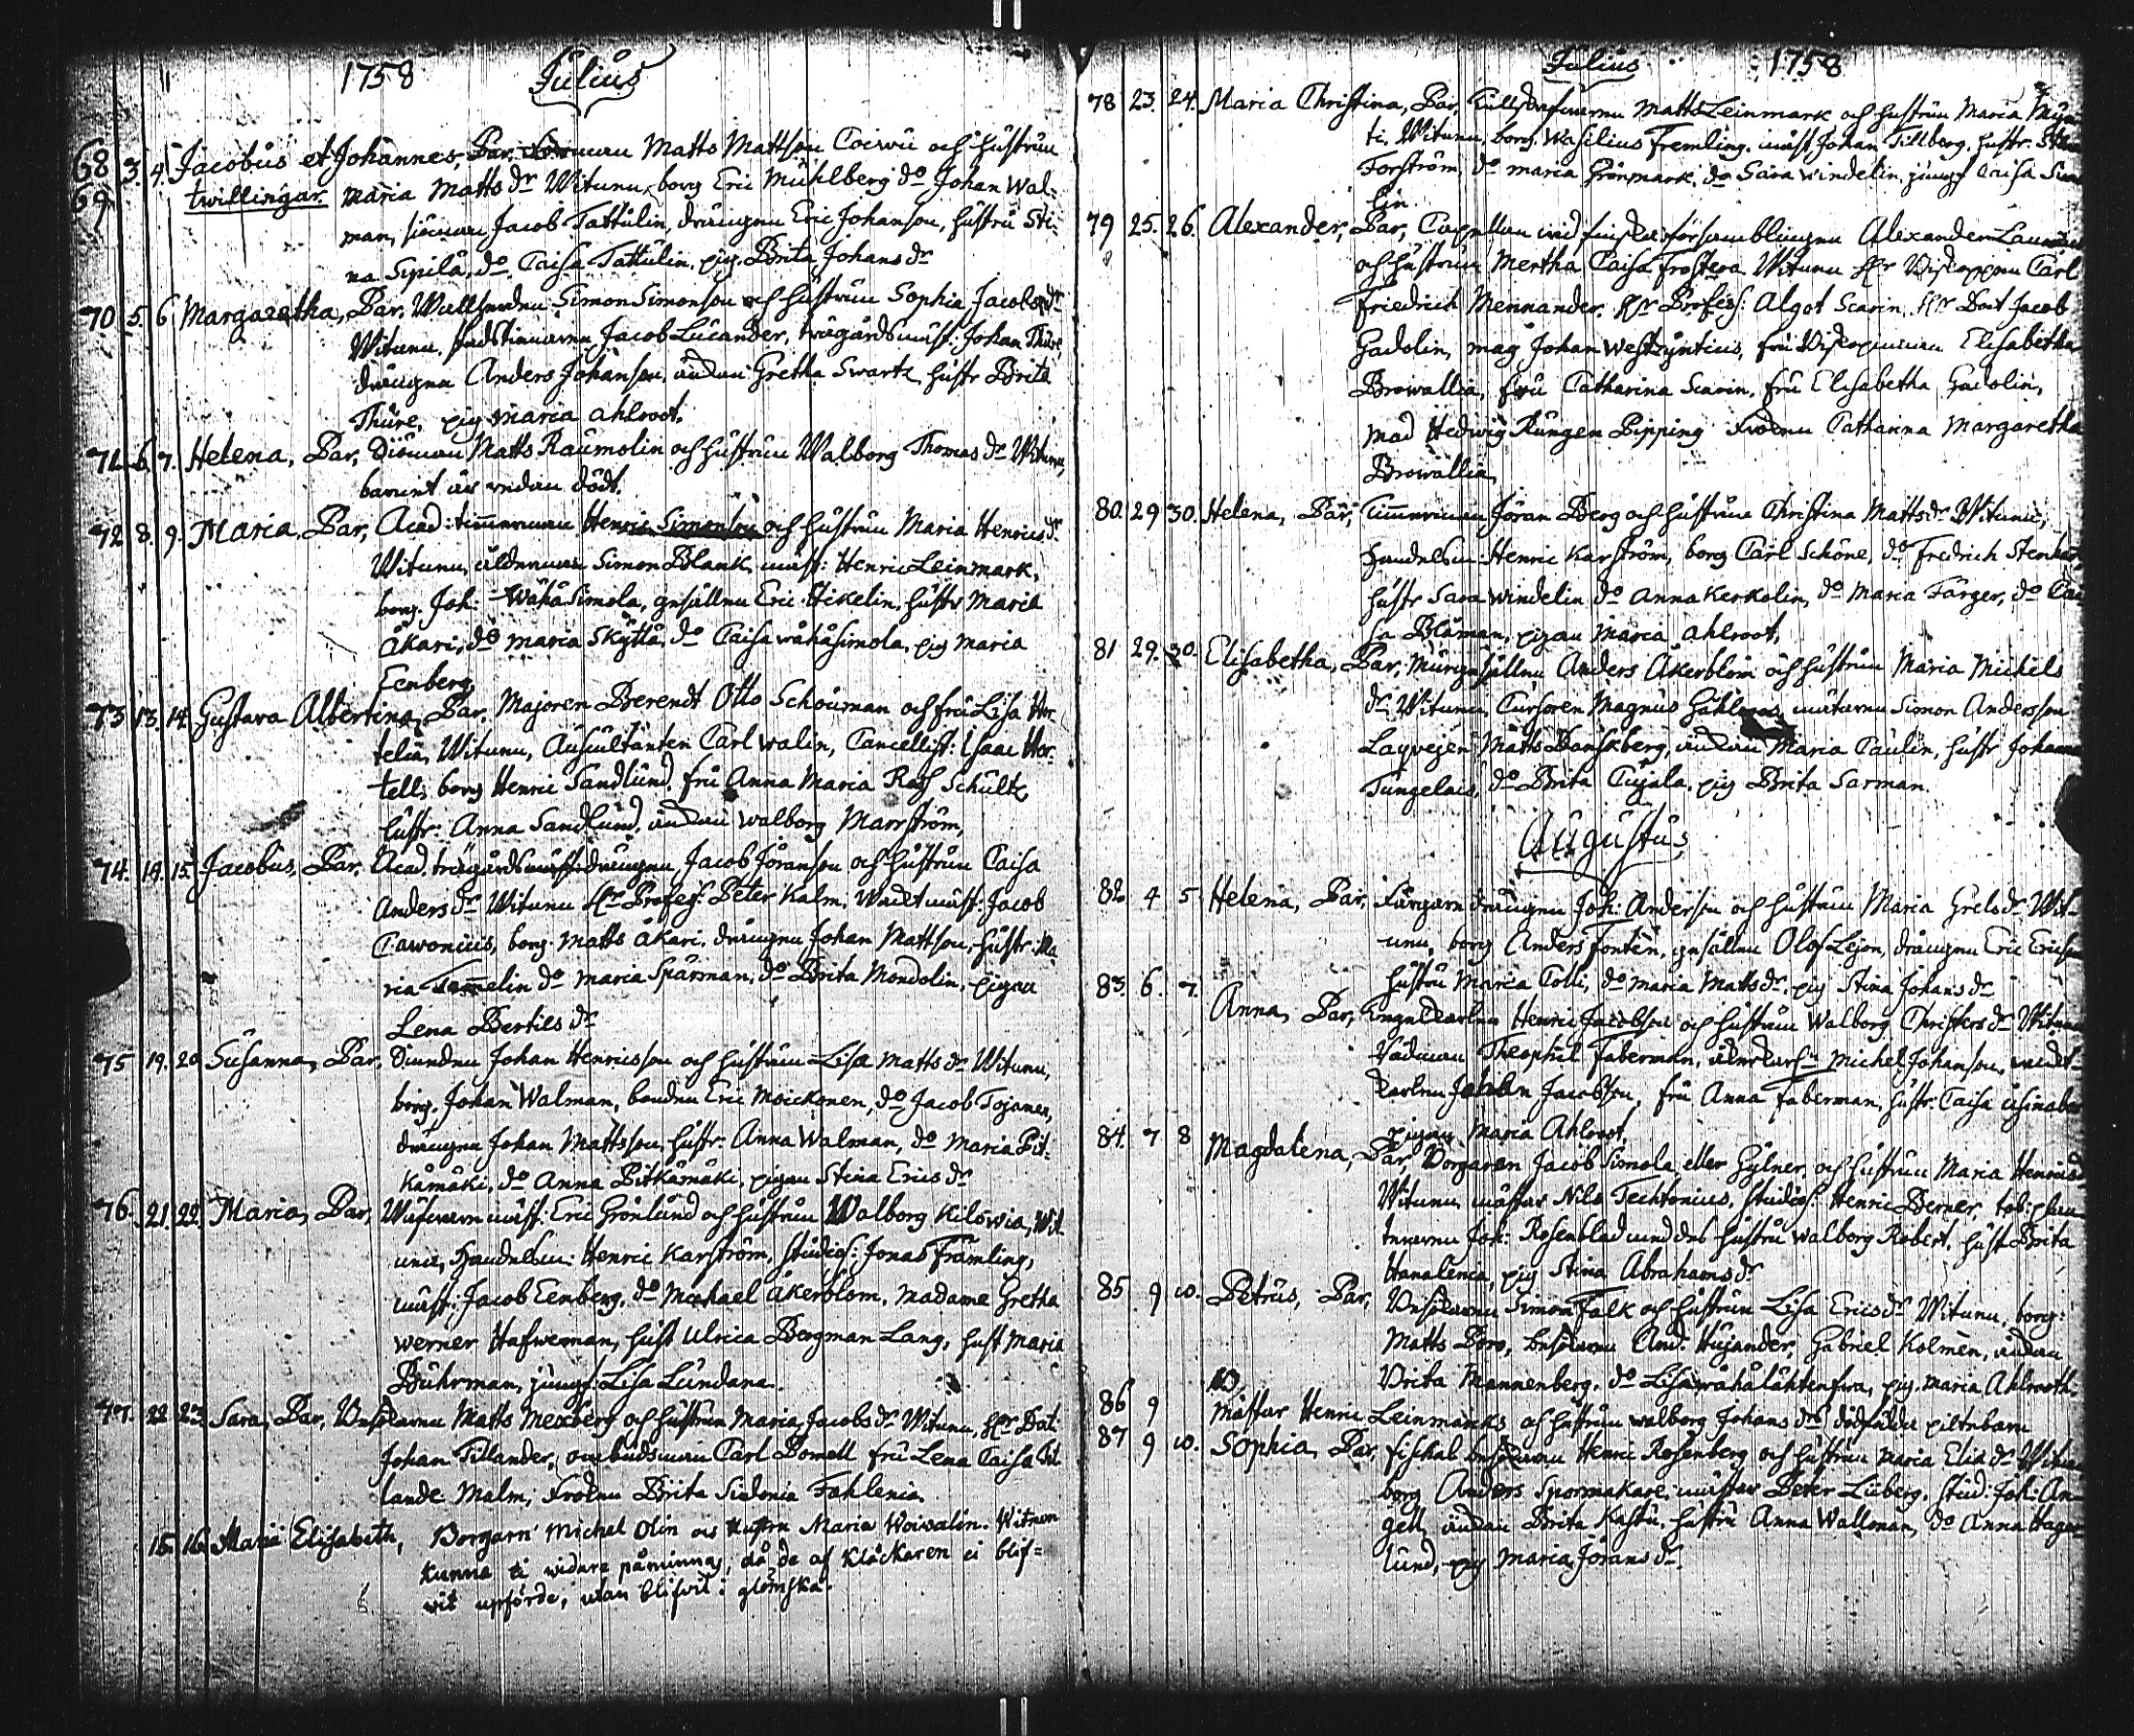 1758 Julius
68 69 3. 4. Jacobus et Johannes, Par. Matts Mattson Coiwu och hustrun
twillingar. Maria Matts dr Witnen, borg Eric Mühlberg do Johan Wal-
man, siöman Jacob Tattulin, drängen Eric Johanson, hustru Sti-
na Sipilä, do Caisa Tattulin, pig. Brita Johans dr
70 5. 6 Margaretha, Par. Simon Simonson och hustrun Sophia Jacobs dr
Witnen, Jacob Lucander, trägårdsmäst. Johan Thure,
drängen Anders Johanson, änckan Gretha Swartz, hustr Brita
Thure, pig Maria Ahlroot.
71 6. 7. Helena, Par, Siöman Matts Raumolin och hustrun Walborg Thomas dr Witnen,
barnet är redan dödt.
72 8. 9. Maria, Par, Acad: timmerman Henric Simonson och hustrun Maria Henrics dr
Witnen, ålderman Simon Blank, mäst: Henric Leinmark,
borg. Joh: Wähä Simola, gesällen Eric Hikelin, hustr Maria
Äkari, do Maria Skyttä, do Caisa wähäsimola, pig Maria
Eenberg
73 13. 14. Gustava Albertina, Par. Majoren Berendt Otto Schouman och fru Lisa Hor-
telia, Witnen, Auscultanten Carl Walin, Cancellist: Isaac Hor-
tell, borg Henric Sandlund, fru Anna Maria Schultz,
hustr: Anna Sandlund, änckan Walborg Marström,
74. 14. 15. Jacobus, Par. Acad. trägårdsmäst. drängen Jacob Jöranson och hustrun Caisa
Anders dr Witnen Hr Profess: Peter Kalm, mäst: Jacob
Cawonius, borg. Matts Äkari, drängen Johan Mattson, hustr: Ma-
ria Tam̄elin do Maria Spärman, do Brita Mondolin, pigan
Lena Bertils dr
75 19. 20. Susanna, Par. Johan Henricsson och hustrun Lisa Matts dr Witnen,
borg. Johan Walman, bonden Eric Moickonen, do Jacob Tojanen,
drängen Johan Mattsson, hustr: Anna Walman, do Maria Pit-
kämäki, do Anna Pitkämäki, pigan Stina Erics dr
76. 21. 22. Maria, Par, mäst: Eric Grönlund och hustrun Walborg Kilowia, Wit-
nen, Handelsm: Henric Karström, studios: Jonas Främling,
mäst: Jacob Eenberg, do Michael Åkerblom, Madame Gretha
Werner Hafwerman, hust Ulrica Bergman Lang, hust Maria
Buhrman, jungf. Lisa Lundana.
77. 22 23. Sara, Par, Matts Mexberg och hustrun Maria Jacobs dr Witnen, Hr
Johan Tillander, ombudsman Carl Bomell fru Lena Caisa Til
lande Malm, Fröken Brita Sidonia Fahlenia.
15. 16. Maria Elisabeth, Borgarn Michel Olin och Hustru Maria Woivalin. Witnen
kunna ei widare påminnas, då de af Klåckaren ei blif=
wit upförde, utan blifwit i glömska.
Julius 1758
78 23. 24. Maria Christina, Par, Matts Leinmark och hustrun Maria
ti. Witnen, borg. Wasilius Fremling, mäst Johan Tillberg, hustr.
Forström, do Maria Grönmark, do Sara Windelin, jungf Caisa
lin.
79 25. 26. Alexander, Par, Capellan wid finska församblingen Alexander
och hustrun Mertha Caisa Frostera. Witnen Hr Biskoppen Carl
Friedrich Mennander, Hr Profess: Algot Scarin, Hr Jacob
Gadolin, mag Johan Westzyntius, fru Biskopinnan Elisabetha
Browallia, fru Catharina Scarin, fru Elisabetha Gadolin,
Mad Hedwig Rungen Pipping Fröken Catharina Margaretha
Browallia
80. 29 30. Helena, Par, Timmerman Jöran Berg och hustrun Christina Matts dr Witnen,
Handelsm: Henric Karström, borg Carl Schöne, do Fredrich
hustr Sara Windelin do Anna Kerkolin, do Maria Färger, do Cai
sa Blåman, pigan Maria Ahlroot,
81 29. 30. Elisabetha, Par, Murgesällen Anders Åkerblom och hustrun Maria Michels
dr Witnen, Cursoren Magnus mätaren Simon Andersson
Matts Danskberg, änckan Maria Caulin, hustr Johanna
Tungelais, do Brita Cujala, pig Brita Sarman.
Augustus
82 4 5 Helena, Par, Färgare drängen Joh: Anderson och hustrun Maria Grels dr Wit-
nen, borg Anders Fonten, gesällen Olof Lejon, drängen Eric
hustru Maria Colli, do Maria Matts dr, pig Stina Johans dr
83. 6. 7. Anna, Par, Henric Jacobson och hustrun Walborg Christers dr
Rådman Theophil Faberman, Michel Johanson,
Jacobson, fru Anna Faberman, hustr. Caisa
pigan Maria Ahlroot,
84. 7 8 Magdalena, Par, Borgaren Jacob Simola eller Gylner och hustrun Maria Henrics
Witnen mästar Nils Techtonius, studios: Henric Berner,
Joh: Rosenblad hustru Walborg Robert, hust Brita
Hanalenia, pig Stina Abrahams dr
85 9 10. Petrus, Par, Simon Falk och hustrun Lisa Erics dr Witnen, borg:
Matts And: Hujander, Gabriel Kolmen, änckan
Brita Mannenberg, do Lisa pig. Maria Ahlrooth.
86 9 Mästar Henric Leinmarcks och hustrun Walborg Johans drs dödfödde
87 9 10. Sophia, Par, Henric Rosenberg och hustrun Maria Elia dr
borg Anders Spormakare, mästar Peter Liberg, stud: Joh: An-
gell, änckan Brita Kastu, hustru Anna Wallman, do Anna
lund, pig Maria Jörans dr.